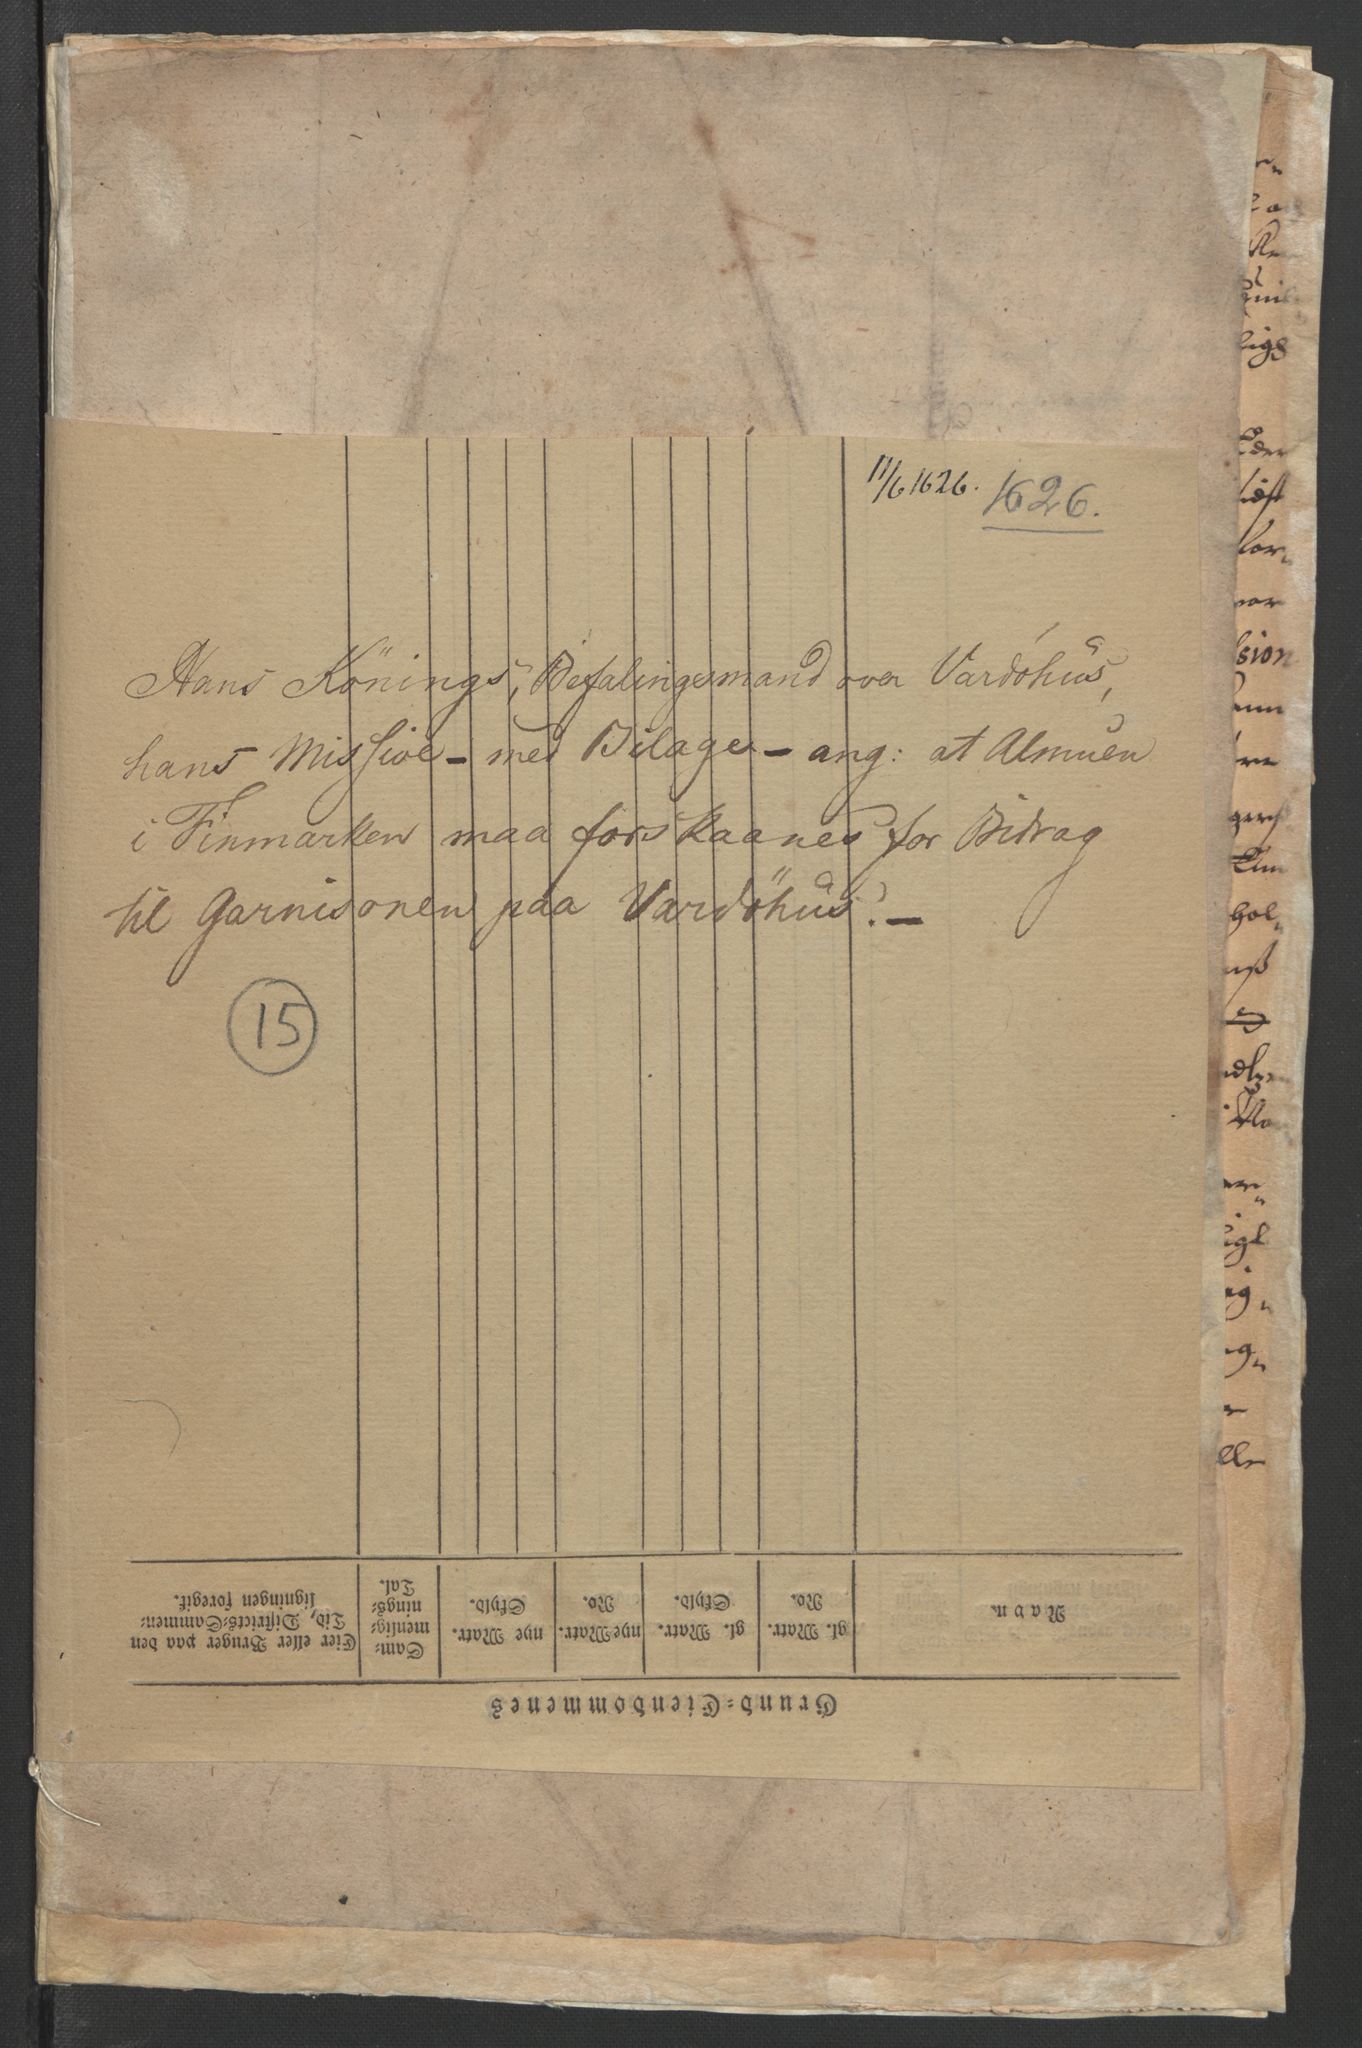 11/6 1626. 1626.
Hans Könings, Befalingsmand over Vardöhus,
hans Missive - med Bilager - ang: at Almuen
i Finmarken maa forskaanes for Bidrag
til Garnisonen paa Vardöhus. -
15
Grund-Eiendommenes
Navn.
gl. Matr. No.
gl. Matr. Skyld.
nye Matr. No.
nye Matr. Skyld.
Sam-
menlig-
nings-
Tal.
Eier eller Bruger paa den
Tid, Districts-Sammen-
ligningen foregik.